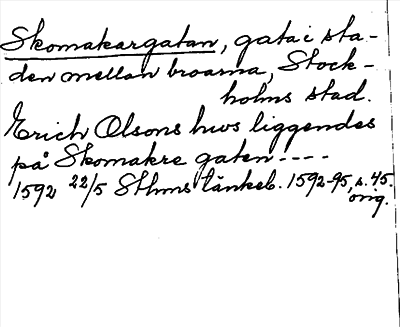 Skomakargatan, gata i sta-
den mellan broarna, Stock-
holms stad.
Erich Olsons hws liggendes
på Skomakre gaten ----
1592 22/5 Sthms tänkeb. 1592-95, s. 45.
orig.